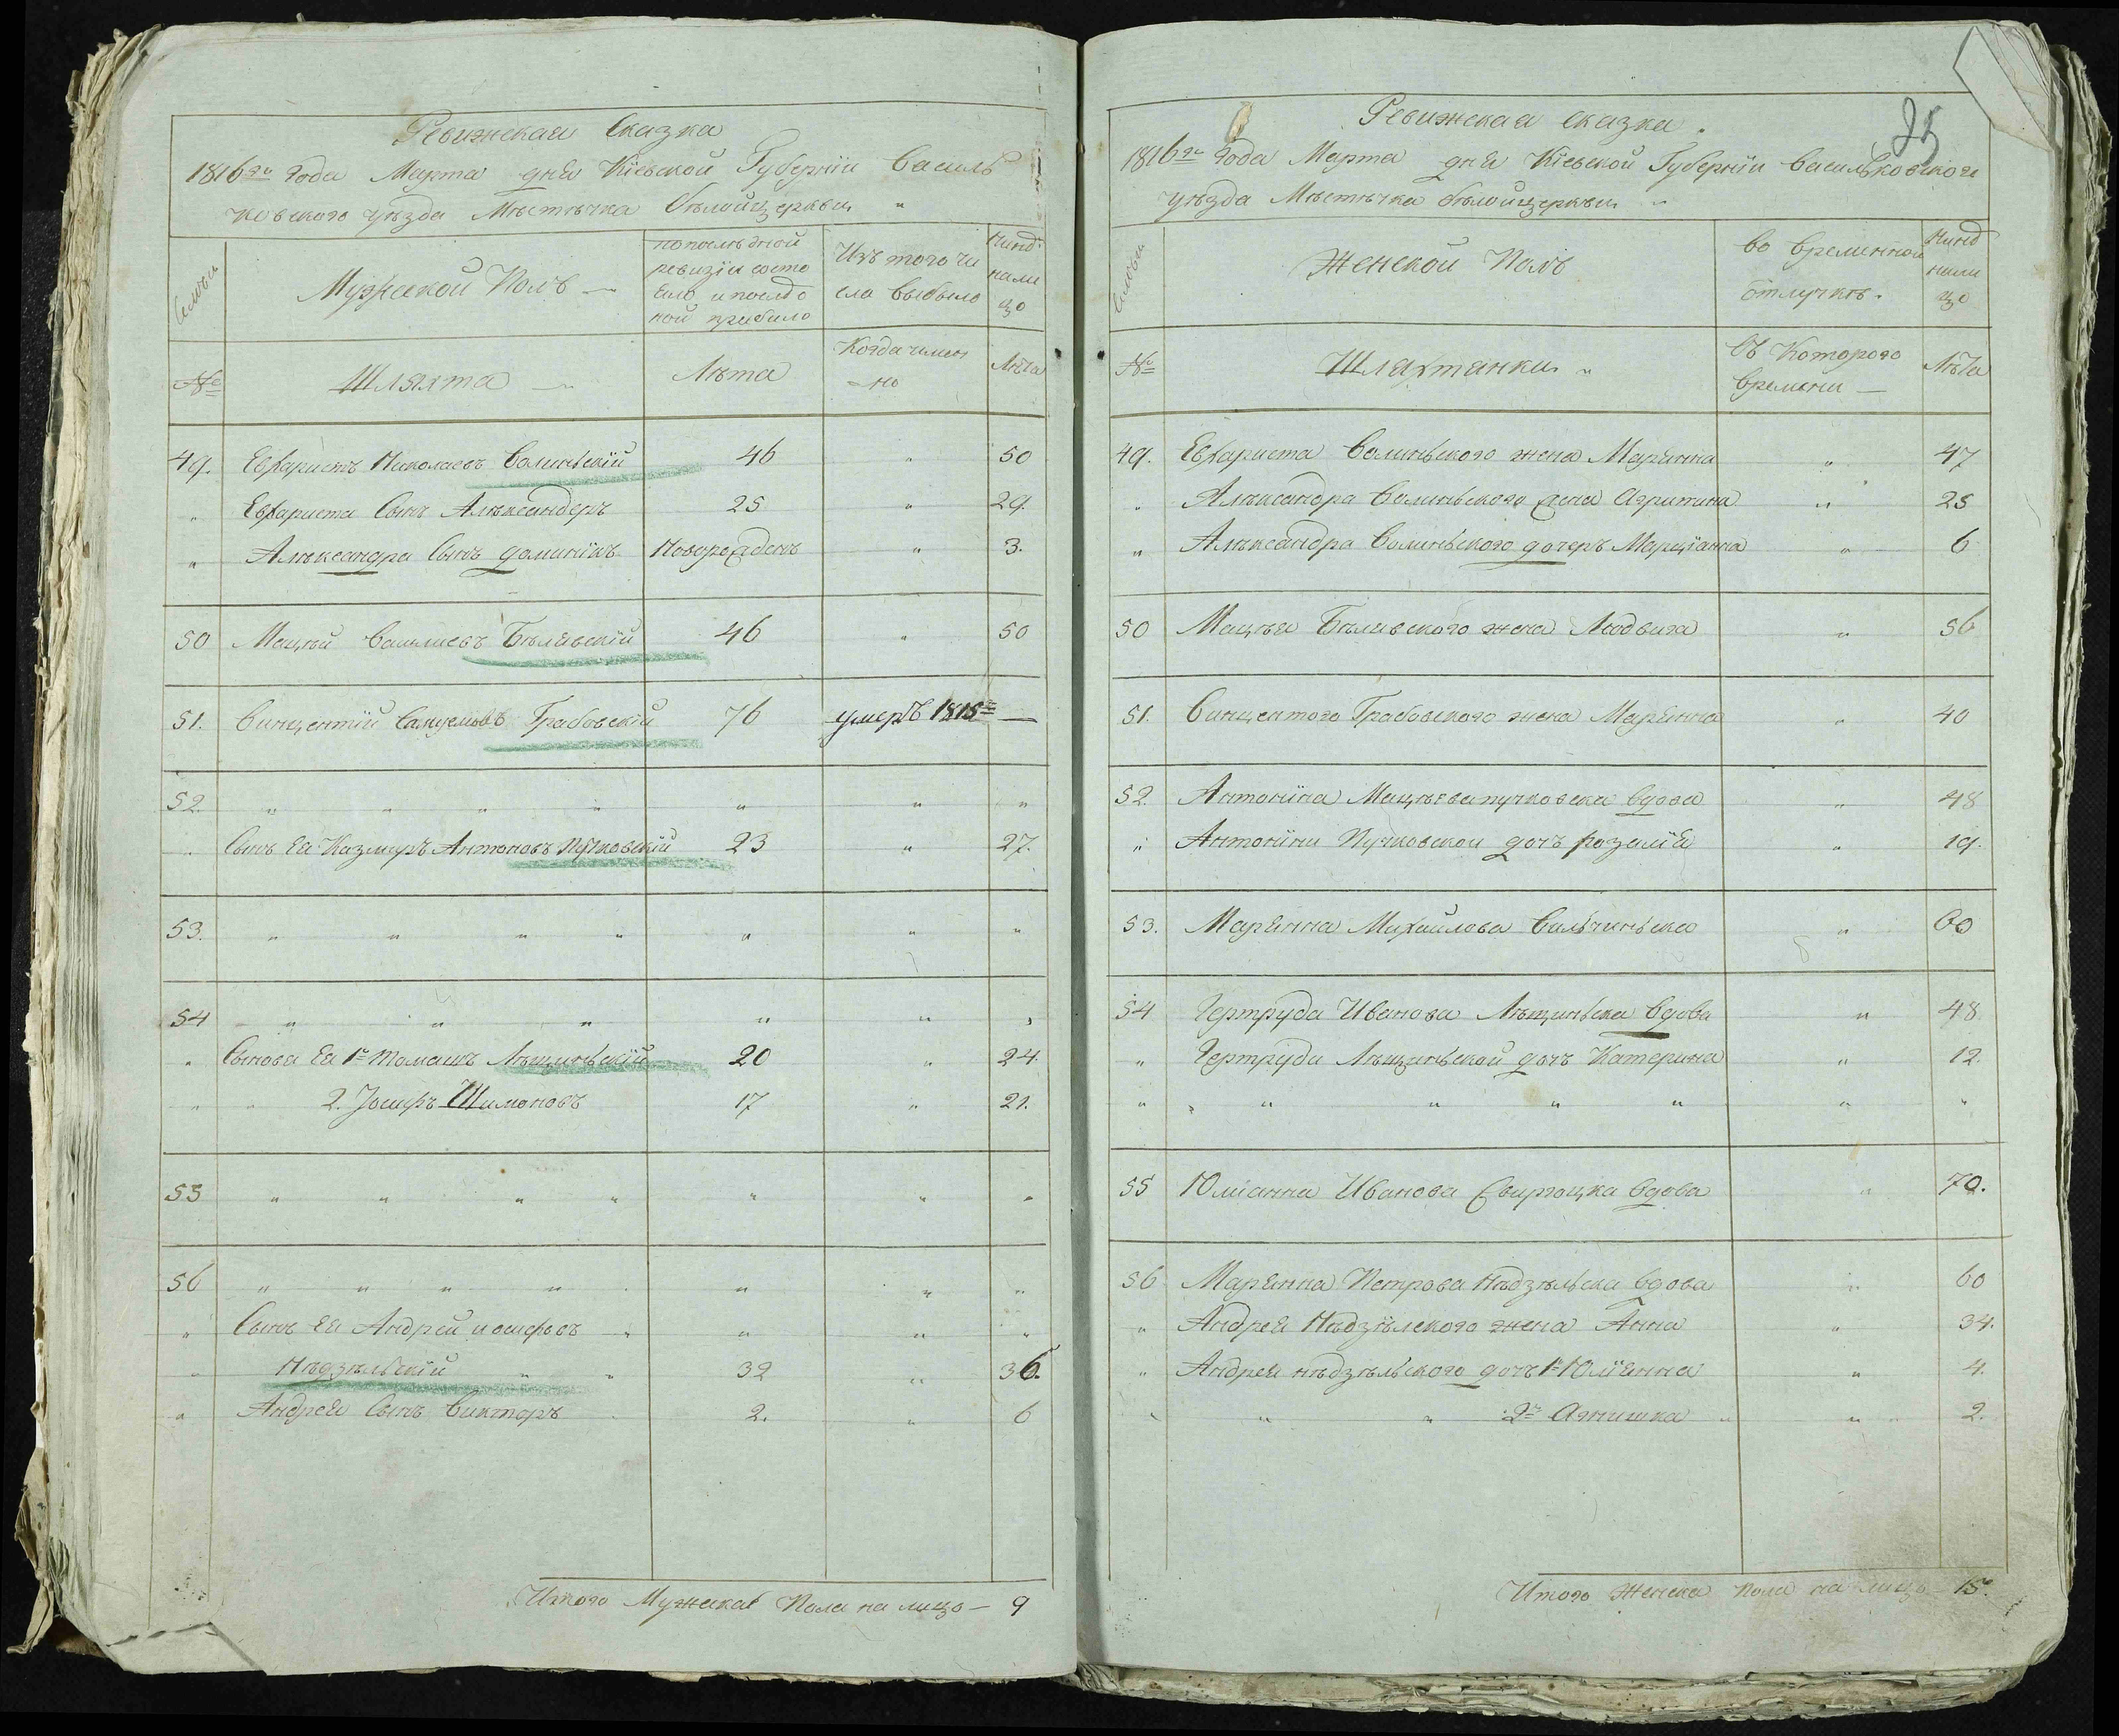 Ревижская Сказка
1816го Года Марта дня Кіевской Губерніи Василь
ковского уѣзда Мѣстѣчка бѣлойцеркви
Мужеской Полъ
попослѣдной
ревизіи состо
яло и послѣдо
ной прибило
Изъ того чи
сла выбыло
Нинѣ
нали
цо
№
Шляхта
Лѣта
Когда имен
но
Лѣта
49. Евхаристъ Николаевъ Волинскій 46 " 50
" Евхариста Сынъ Алѣксандеръ 25 " 29.
" Алѣксандра Сынъ доминикъ Новорожденъ " 3.
50 Мацѣй Василиевъ Бѣлявскій 46 " 50
51. Винцентій Самуеловъ Грабовскій 76 умеръ 1815го —
52. " " " " " " "
" Сынъ Ея Казмиръ Антоновъ Пучковскій 23 " 27.
53. " " " " " " "
54 " " " " " "
" Сынова Ея 1й Томашъ Лѣщинскій 20 " 24.
" " 2. Іосифъ Шимоновъ 17 " 21.
55 " " " " " " "
56 " " " " " " "
" Сынъ Ея Андрей иосифовъ " " " "
" Нѣдзѣльскій " " 32 " 36.
" Андрея Сынъ Викторъ 2. " 6
Итого Мужеска Пола на лицо — 9
25
Ревижская сказка.
1816го Года Марта дня Кіевской Губерніи Васильковского
уѣзда Мѣстѣчка бѣлойцеркви
Женской Полъ
во временной
отлучкѣ.
Нинѣ
нали
цо
№
Шляхтянки
съ Которого
времени —
Лѣта
49. Евхариста Волинского жена Марянна " 47
" Алѣксандра Волинского жена Агрипина " 25
" Алѣксандра Волинского дочеръ Марціанна " 6
50 Мацѣя Бѣлявского жена Людвига " 56
51. Винцентого Грабовского жена Марянна " 40
52. Антоніна Мацѣева пучковска вдова " 48
" Антоніни Пучковской дочъ розалія " 19.
53. Марянна Михайлова " 60
54 Гертруда Иванова Лѣщинска вдова " 48
" Гертруди Лѣщинской дочъ Катерина " 12.
" " " " " " " "
55 Юліанна Иванова вдова " 70.
56 Марянна Петрова Нѣдзѣльска вдова " 60
" Андрея Нѣдзѣлского жена Анна " 34.
" Андрея нѣдзѣльского дочъ 1я Юліянна " 4.
" " " 2я Агнишка " " 2.
Итого Женска пола на лицо — 15.